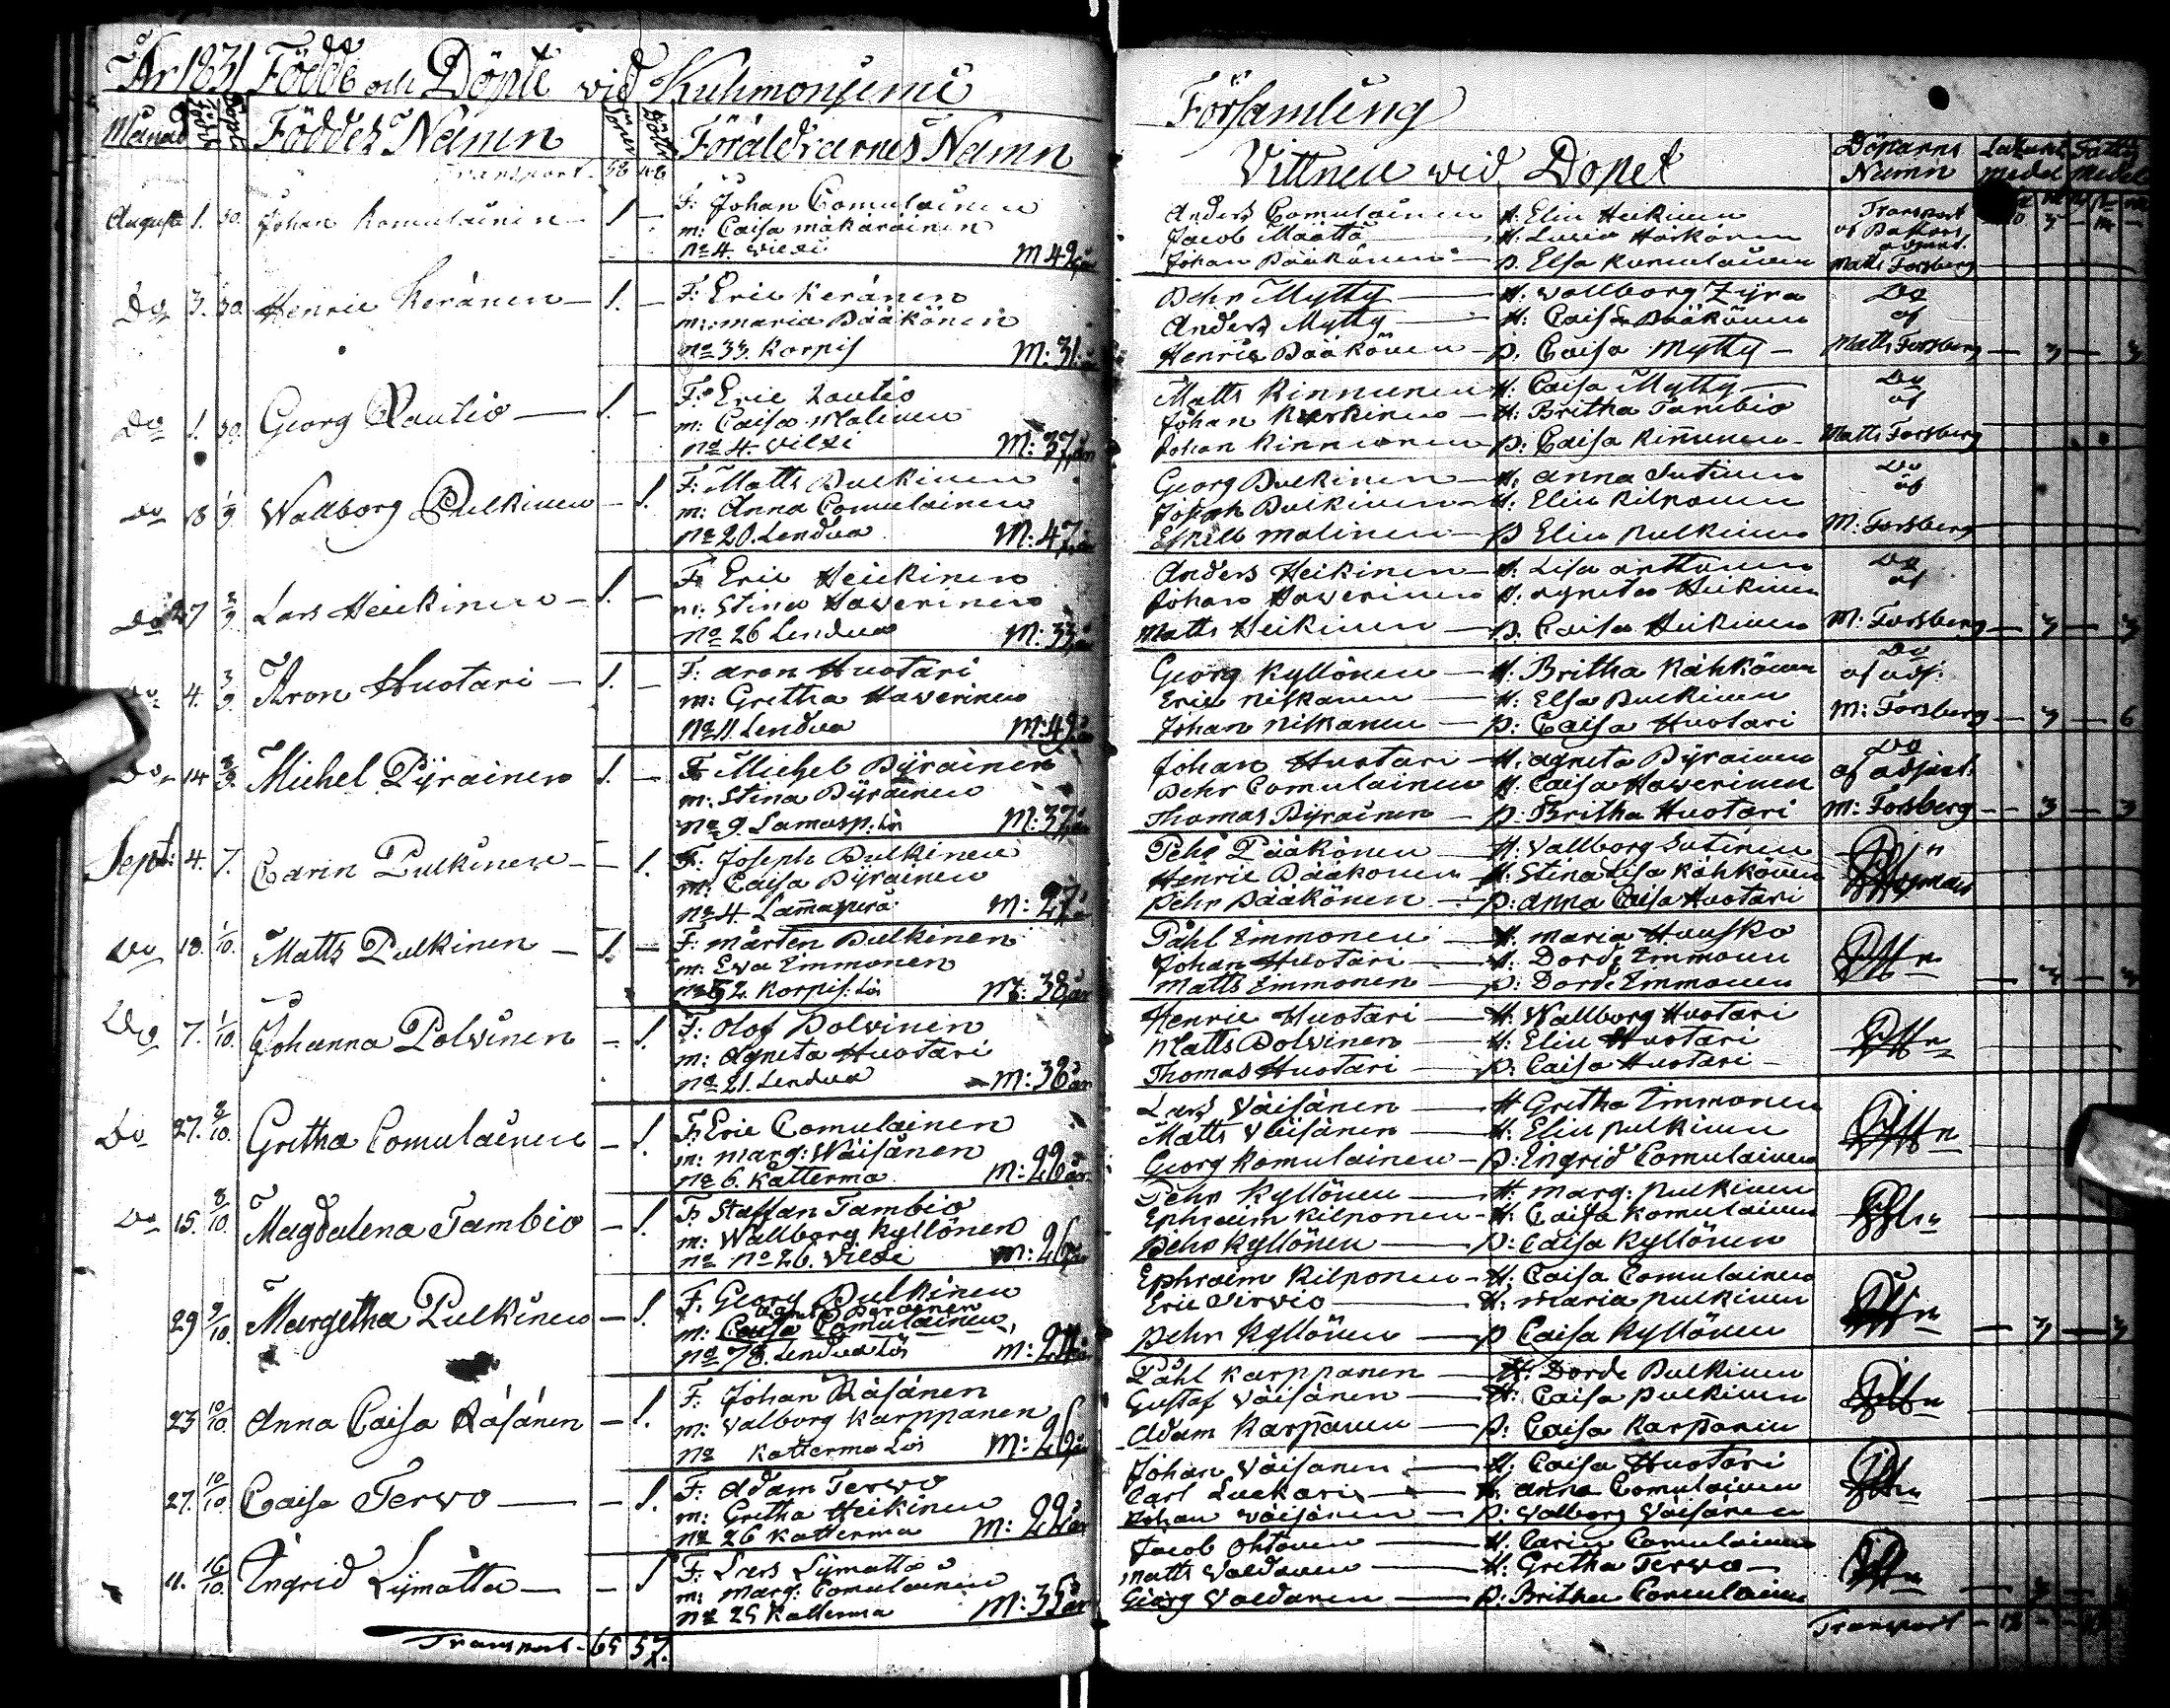 År 1831 Födde och Döpte wid Kuhmoniemi
Månad Född Döpt Föddes Namn Söner Döttr. Föräldrarnes Namn
Transport. 58 46
Augusti 1. 30. Johan Komulainen 1. —
F: Johan Comulainen
m: Caisa makäräinen
No 4. wiexi M 42 år
Do 3. 30. Henric Keränen — 1. —
F: Eric Keränen
m: maria Pääkönen
No 33. Korpis M: 31. år
Do 1. 30. Georg Rautio — 1. —
F: Eric Rautio
m: Caisa Malinen
No 4. Viexi M: 37 år
Do 18 1/9 Wallborg Pulkinen — 1.
F: Matts Pulkinen
m: Anna Comulainen
No 20. Lendua M: 47 år
Do 27 3/9. Lars Heickinen — 1. —
F: Eric Heickinen
m: Stina Hawerinen
No 26 Lendua M: 33 år
Do 4. 3/9. Aron Huotari — 1. —
F: Aron Huotari
m: Gretha Hawerinen
No 11. Lendua M: 42 år
Do 14 3/9. Michel Pyräinen 1. —
F: Michel Pyräinen
m: Stina Pyräinen
No 9. Lamasp: Lös M: 37 år
Sept: 4. 7. Carin Pulkinen — 1.
F: Joseph Pulkinen
m: Caisa Pyräinen
No 4 Lam̄asperä M: 27 år
Do 18. 1/10. Matts Pulkinen — 1. —
F: mårten Pulkinen
m: Eva Immonen
No 52. Korpis: Lös M: 38 år
Do 7. 1/10. Johanna Polvinen — 1.
F: Olof Polvinen
m: Agneta Huotari
No 21. Lendua M: 38 år
Do 27. 2/10. Gretha Comulainen — 1.
F: Eric Comulainen
m: marg: Wäisänen
No 6. Katterma M: 28 år
Do 15. 8/10. Magdalena Tambio — 1.
F: Staffan Tambio
m: Wallborg Kyllönen
No No 26. Viexi M: 26 år
29 9/10. Margetha Pulkinen — 1.
F: Georg Pulkinen
Agneta Pyräinen
m: Caisa Comulainen,
No 78. Lendua Lös M: 24 år
23 10/10. Anna Caisa Räsänen — 1.
F: Johan Räsänen
m: Valborg Karppanen
No Katterma Lös M: 26 år
27. 10/10. Caisa Terwo — 1.
F: Adam Terwo
m: Gretha Heikinen
No 26 Katterma M: 22 år
11. 16/10. Ingrid Lymatta — 1
F: Lars Lymatta
m: marg: Comulainen
No 25 Katterma M: 35 år
Transport — 65 57.
Församling
Vittnen wid Dopet Döparns Namn medel medel
Anders Comulainen H: Elin Heikinen Transport
Jacob Määttä H: Lusia Häikönen af Pastors
Johan Pääkönen p. Elsa Komulainen Matts Forsberg
Pehr Mytty — H: wallborg Zyra Do
Anders Mytty — H: Caisa Pääkönen af
Henric Pääkönen — p. Caisa Mytty — Matts Forsberg — 3 — 3
Matts Kinnunen H. Caisa Mytty — Do
Johan Kerkinen — H: Britha Tambio af
Johan Kinnunen p: Caisa Kin̄unen — Matts Forsberg
Georg Pulkinen — H. Anna Sutinen Do
Joseph Pulkinen — H: Elin Kilponen af
Eskill malinen — p Elin Pulkinen M: Forsberg
Anders Heikinen — H. Lisa Arttonen Do
Johan Hawerinen H. Agneta Heikinen af
Matts Heikinen — p. Caisa Heikinen M: Forsberg — 3 — 3
Georg Kyllönen — H: Britha Kähkönen Do
Eric Niskanen — H. Elsa Pulkinen af adj:
Johan Niskanen — p: Caisa Huotari M: Forsberg — 3 — 6
Johan Huotari — H: Agneta Pyräinen Do
Pehr Comulainen H. Caisa Hawerinen af adjunct:
Thomas Pyräinen — p: Britha Huotari M: Forsberg — 3 — 3
Pehr Pääkönen — H: Vallborg Sutinen
Henric Pääkönen — H: Stina Lisa Kähkönen
Pehr Pääkönen — p: Anna Caisa Huotari
Påhl Immonen — H. Maria Hausko
Johan Huotari — H: Dorde Immonen
Matts Immonen — p: Dorde Immonen — 3 — 3
Henric Huotari — H: Wallborg Huotari
Matts Polvinen — H: Elin Huotari
Thomas Huotari — p: Caisa Huotari —
Lars Väisänen — H Gretha Immonen
Matts Väisänen — H: Elin Pulkinen
Georg Komulainen — p: Ingrid Comulainen
Pehr Kyllönen — H: Marg: Pulkinen
Ephraim Kilponen — H: Caisa Komulainen
Pehr Kyllönen — p: Caisa Kyllönen
Ephraim Kilponen — H: Caisa Comulainen
Eric Sirvio — H: Maria Pulkinen
Pehr Kyllönen — p Caisa Kyllönen — 3 — 3
Påhl Karppanen — H: Dorde Pulkinen
Gustaf Väisänen — H: Caisa Pulkinen
Adam Karpanen — p: Caisa Karpanen
Johan Väisänen — H. Caisa Huotari
Carl Luckari — H Anna Comulainen
Johan Väisänen — p: Walborg Väisänen
Jacob Ohtonen — H: Carin Comulainen
Matts Valdanen — H: Gretha Terwo —
Georg Valdanen — p: Britha Comulainen
Transport